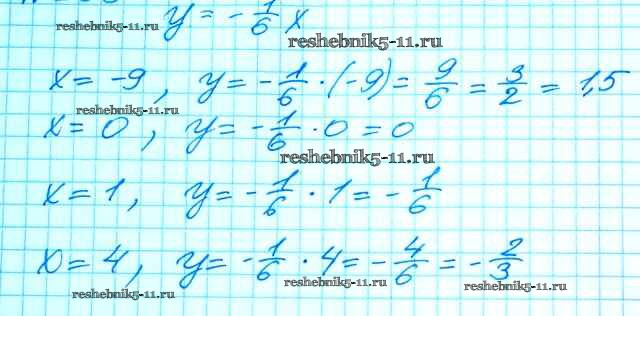 y = -1/6 x
reshebnik5-11.ru
reshebnik5-11.ru
x = -9, y = -1/6 · (-9) = 9/6 = 3/2 = 1,5
reshebnik5-11.ru
x = 0, y = -1/6 · 0 = 0
reshebnik5-11.ru
x = 1, y = -1/6 · 1 = -1/6
reshebnik5-11.ru
x = 4, y = -1/6 · 4 = -4/6 = -2/3
reshebnik5-11.ru
reshebnik5-11.ru
reshebnik5-11.ru